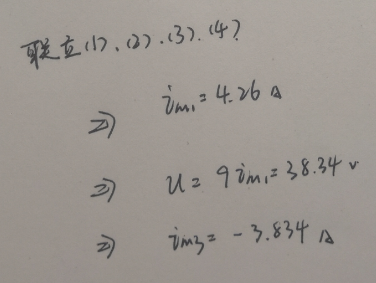 联立(1)、(2)、(3)、(4)
⇒ im₁=4.26 A
⇒ U=9im₁=38.34 v
⇒ im3=-3.834 A